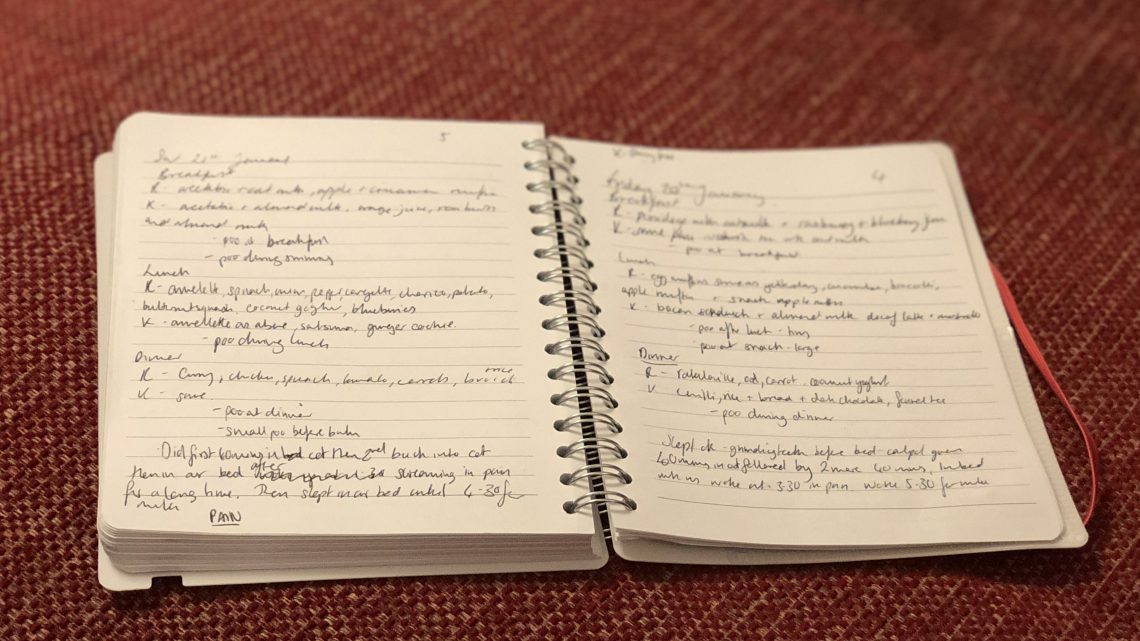 5
21st January
Breakfast
R - + oat milk, apple + cinnamon muffin
K - + almond milk, orange juice,
and almond milk
- poo at breakfast
- poo during swimming
Lunch
R - omelette, spinach, onion, pepper, courgette, chorizo, potato,
butternut squash, coconut yoghurt, blueberries
K - omelette as above, satsuma, ginger cookie.
- poo during lunch
Dinner
rice
R - Curry, chicken, spinach, tomato, carrots,
K - same
- poo at dinner
- small poo before
Did first in cot then 2nd back into cot
after
then in our bed screaming in pain
for a long time. Then slept in our bed until 4-30 for
milk
PAIN
4
K -
Friday 20th January
Breakfast
R - oatmilk + raspberry + blueberry
K - same
- poo at breakfast
Lunch
R - egg muffins same as yesterday, cucumber, broccoli,
apple muffin + snack apple
K - bacon sandwich + almond milk decaf latte +
- poo after lunch -
poo at snack - large
Dinner
R - ratatouille, cod, carrot, coconut yoghurt
K chilli, rice + bread + dark chocolate,
- poo during dinner
Slept ok - grinding teeth before bed calpol given
40 mins in cot followed by 2 more 40 mins, in bed
with us woke at 3.30 in pain woke 5.30 for milk